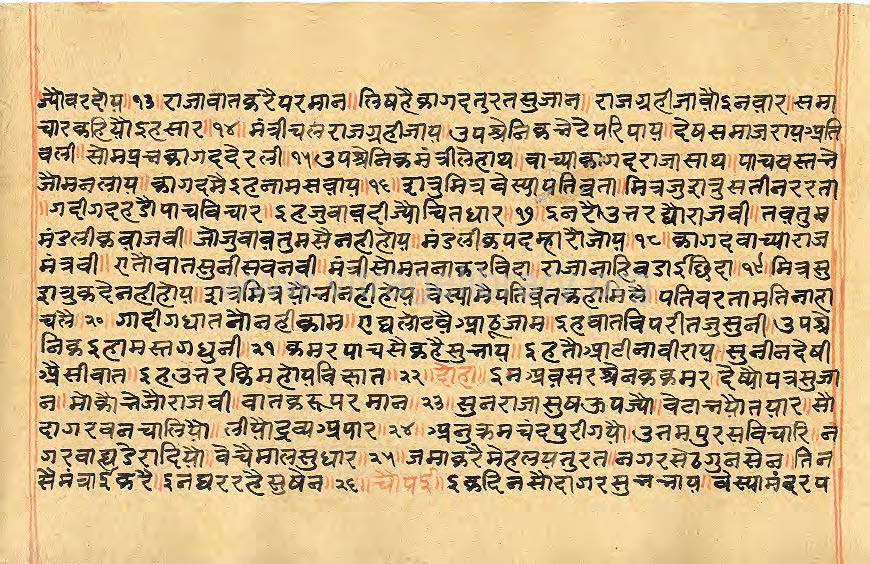 ज्यौवरदोय॥१३॥राजावातकरैपरमान॥लिषहैकागदतुरतसुजान॥राजग्रहीजावौइनवार॥समा
चारकहियौइहसार॥१४॥मंत्रीचलराजग्रहीजाय॥उपश्रैनिकनैदैपरिपाय॥देषसमाजरायअति
वली॥सोमप्रचकागददैरली॥१५॥उपश्रैनिकमंत्रीलेहाथ॥वाच्याकागदराजासाथ॥पाचवस्तनै
जौमनलाय॥कागदमैइहनामसवाय॥१६॥शत्रुमित्रवेस्यापतिव्रता॥मित्रजुशत्रुसतीनररता
॥गदीगदहडौपाचविचार॥इहजुवावदीज्यौचितधार॥१७॥इनरौउत्तरद्यौराजवी॥तवतुम
मंडलीकवाजवी॥जोजुवावतुमसैनहीहोय॥मंडलीकपदम्हारौजोय॥१८॥कागदवाच्याराज
मंत्रवी॥एतौवातसुनीसवनवी॥मंत्रीसोमतनाकरविदा॥राजानाहिवडाईछिदा॥१९॥मित्रसु
शत्रुकदेनहीहोय॥शत्रमित्रसोचीनहीहोय॥वेस्यामैपतिव्रतकहामिलै॥पतिवरतामतिनाहा
चलै॥२०॥गादीगधातनौनहीकाम॥एछलोटवैआठूजाम॥इहवातविपरीतजुसुनी॥उपश्रे
निकइहामस्तगधुनी॥२१॥कमरपाचसैकहैसुचाय॥इहतौआटीनावीराय॥सुनीनदेषी
औसीवात॥इहउत्तरकिमहोयविक्षात॥२२॥दोहा॥इमअवसरश्रेनककमर॥देष्यौपत्रसुजा
न॥मोकौनेजौराजवी॥वातकरूपरमान॥२३॥सुनराजासुषऊपज्यौ॥वेटानयौतयार॥सौ
दागरवनचालियौ॥लीयौद्रव्यअपार॥२४॥अनुक्रमचंदपुरीगयौ॥उतमपुरसविचारि॥न
गरवाद्यडेरादियौ॥वेचैमालसुधार॥२५॥जमाकरैमेहलयतुरत॥नगरसेठगुनसेन॥तिन
सैमंत्राईकरै॥इनघररहैसुषेन॥२६॥चौपई॥इकदिनसौदागरसुचचाय॥वेस्यामंदरप